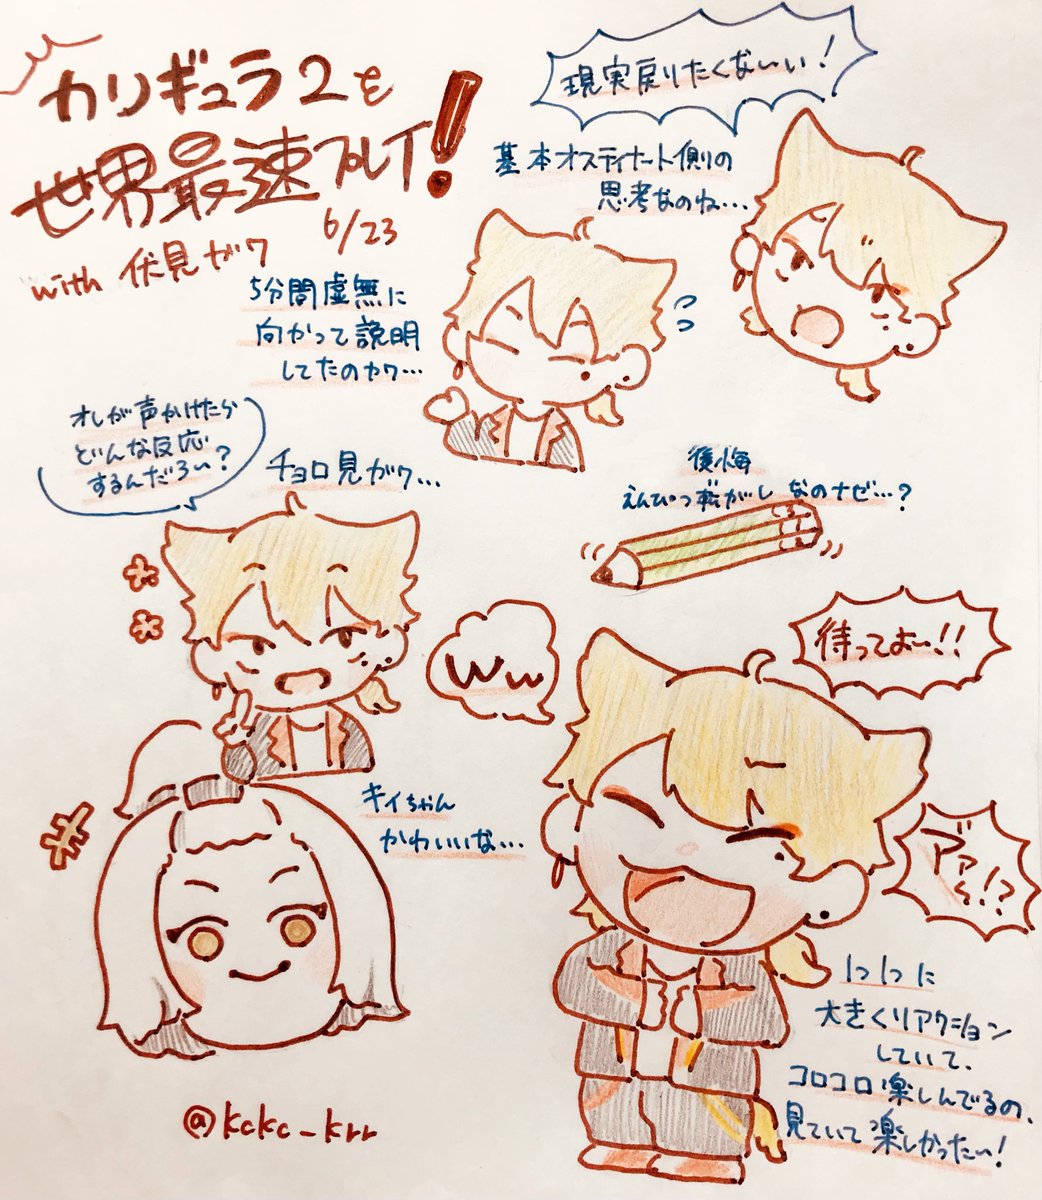 カリギュラ2を
世界最速プレイ!
6/23
with 伏見ガク
現実戻りたくないぃ!
基本オスティナート側の
思考なのね…
5分間虚無に
向かって説明
してたのガク…
オレが声かけたら
どんな反応
するんだろぃ?
チョロ見ガク…
後悔
えんぴつ転がし なのナゼ…?
ww
待ってぉ〜!!
キィちゃん
かわいいな…
1つ1つに
大きくリアクション
していて、
コロコロ楽しんでるの、
見ていて楽しかったぃ!
@kckc_krr